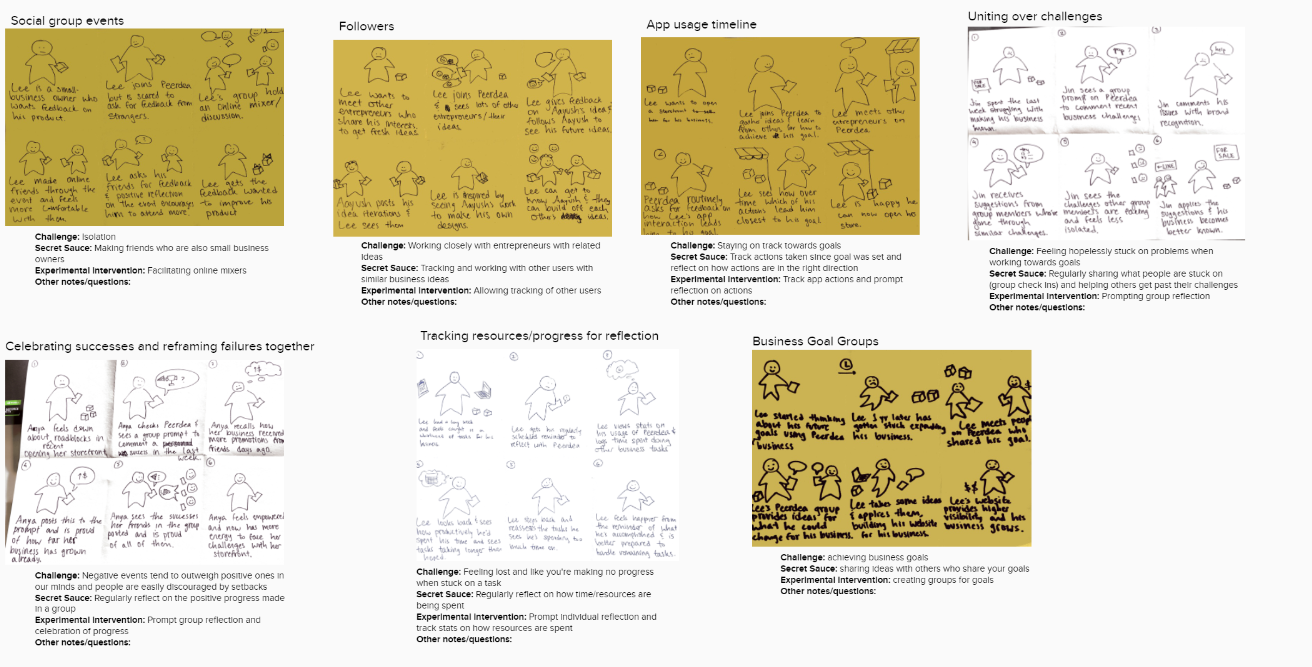 Social group events
Lee is a small-
business owner who
wants feedback on
his product.
Lee joins Peerdea
but is scared to
ask for feedback from
strangers.
Lee's group hold
an online mixer/
discussion.
Lee made online
friends through the
event and feels
more comfortable
with them.
Lee asks his
friends for feedback
& positive reflection
on the event encourages
him to attend more.
Lee gets the
feedback wanted
to improve his
product
Challenge: Isolation
Secret Sauce: Making friends who are also small business
owners
Experimental Intervention: Facilitating online mixers
Other notes/questions:
Followers
Lee wants to
meet other
entrepreneurs who
share his interests
to get fresh ideas.
Lee joins Peerdea
& sees lots of other
entrepreneurs/their
ideas.
Lee gives feedback
on Aayush's ideas &
follows Aayush to
see his future ideas.
Aayush posts his
idea iterations &
Lee sees them.
Lee is inspired by
seeing Aayush's work
to make his own
designs.
Lee can get to
know Aayush & they
can build off each
other's ideas.
Challenge: Working closely with entrepreneurs with related
ideas
Secret Sauce: Tracking and working with other users with
similar business ideas
Experimental Intervention: Allowing tracking of other users
Other notes/questions:
App usage timeline
Lee wants to open
a storefront
for his business.
Lee joins Peerdea to
gather ideas & learn
from others for how to
achieve his goal.
Lee meets other
entrepreneurs on
Peerdea.
Peerdea routinely
asks for feedback on
how Lee's app
interaction leads
him to his goal.
Lee sees how over
time which of his
actions lead him
closest to his goal.
Lee is happy he
can now open his
store.
Challenge: Staying on track towards goals
Secret Sauce: Track actions taken since goal was set and
reflect on how actions are in the right direction
Experimental Intervention: Track app actions and prompt
reflection on actions
Other notes/questions:
Uniting over challenges
Jin spent the last
week struggling with
making his business
known.
Jin sees a group
prompt on Peerdea
to comment recent
business challenges.
Jin comments his
issues with brand
recognition.
Jin receives
suggestions from
group members who've
gone through
similar challenges.
Jin sees the
challenges other group
members are facing
and feels less
isolated.
FOR
SALE
Jin applies the
suggestions & his
business becomes
better known.
Challenge: Feeling hopelessly stuck on problems when
working towards goals
Secret Sauce: Regularly sharing what people are stuck on
(group check ins) and helping others get past their challenges
Experimental Intervention: Prompting group reflection
Other notes/questions:
Celebrating successes and reframing failures together
Anya feels down
about roadblocks in
recent
opening her storefront.
Anya checks Peerdea &
sees a group prompt to
comment a
success in the last
week.
Anya recalls how
her business received
more promotions from
friends days ago.
Anya posts this to the
prompt and is proud
of how far her
business has grown
already.
Anya sees the successes
her friends in the group
posted and is proud
of all of them.
Anya feels empowered
and now has more
energy to face her
challenges with her
storefront.
Challenge: Negative events tend to outweigh positive ones in
our minds and people are easily discouraged by setbacks
Secret Sauce: Regularly reflect on the positive progress made
in a group
Experimental Intervention: Prompt group reflection and
celebration of progress
Other notes/questions:
Tracking resources/progress for reflection
Lee had a long week
and feels caught in a
whirlwind of tasks for his
business.
Lee gets his regularly
scheduled reminder to
reflect with Peerdea
Lee views stats on
his usage of Peerdea &
logs time spent doing
other business tasks
Lee looks back & sees
how productively he'd
spent his time and sees
tasks taking longer than
Lee steps back and
reassess the tasks he
sees he's spending too
much time on.
Lee feels happier from
the reminder of what
he's accomplished & is
better prepared to
handle remaining tasks.
Challenge: Feeling lost and like you're making no progress
when stuck on a task
Secret Sauce: Regularly reflect on how time/resources are
being spent
Experimental Intervention: Prompt individual reflection and
track stats on how resources are spent
Other notes/questions:
Business Goal Groups
Lee started thinking
about his future
goals using Peerdea
business
Lee 1 yr later has
gotten stuck expanding
his business.
Lee meets people
on Peerdea who
shared his goal.
Lee's Peerdea group
provides ideas for
what he could
change for his business.
Lee takes some ideas
& applies them,
building his website
for his business.
Lee's website
provides higher
visibility and his
business grows.
Challenge: achieving business goals
Secret Sauce: sharing ideas with others who share your goals
Experimental Intervention: creating groups for goals
Other notes/questions: